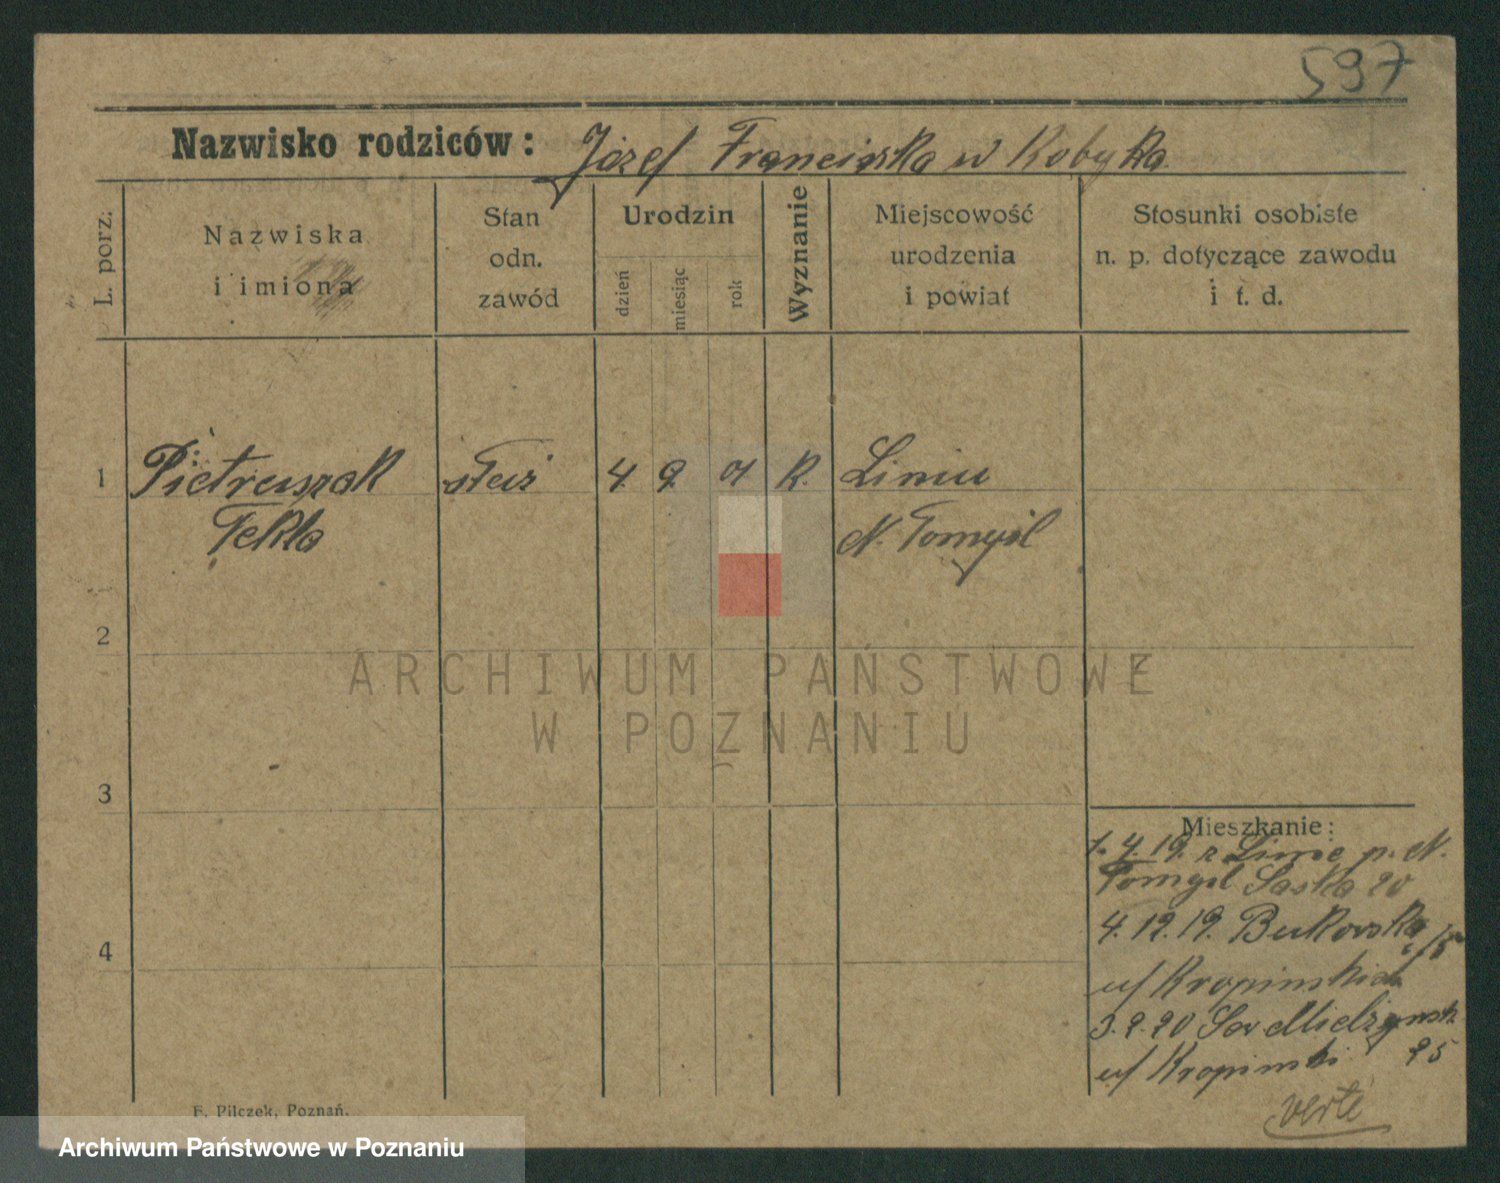 597
Nazwisko rodziców: Józef Franciska w Kobyłka
L. porz.
Nazwiska
i imiona
Stan
odn.
zawód
Urodzin
dzień
miesiąc
rok
Wyznanie
Miejscowość
urodzenia
i powiat
Stosunki osobiste
n. p. dotyczące zawodu
i t. d.
1 Pietruszak służ 4 9 01 k. Liniu
Tekla N. Tomyśl
2
ARCHIWUM PAŃSTWOWE
W POZNANIU
3
Mieszkanie:
1.4.19. z Linie p. N.
Tomyśl Saska 20
4.12.19. Bukowska
4
u/ Kropińskich
3.2.20 Sew Mielżyńsk
u/ Kropinski 25
verte
F. Pilczek, Poznań.
Archiwum Państwowe w Poznaniu